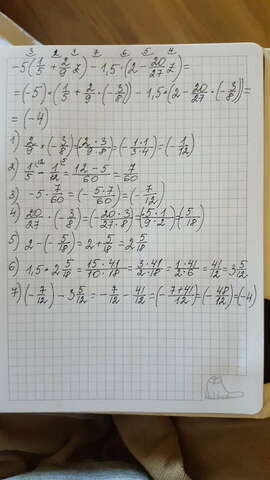 3 2 1 7 6 5 4
-5(1/5 + 2/9 z) - 1,5·(2 - 20/27 z) =
= (-5)·(1/5 + 2/9·(-3/8)) - 1,5·(2 - 20/27·(-3/8)) =
= (-4)
1) 2/9·(-3/8) = (-2·3/9·8) = (-1·1/3·4) = (-1/12)
2) 1/5 - 1/12 = 12-5/60 = 7/60
3) -5·7/60 = (-5·7/60) = (-7/12)
4) 20/27·(-3/8) = (-20·3/27·8) = (-5·1/9·2) = (-5/18)
5) 2-(-5/18) = 2+5/18 = 2 5/18
6) 1,5·2 5/18 = 15·41/10·18 = 3·41/2·18 = 1·41/2·6 = 41/12 = 3 5/12
7) (-7/12) - 3 5/12 = -7/12 - 41/12 = (-7+41/12) = (-48/12) = (-4)